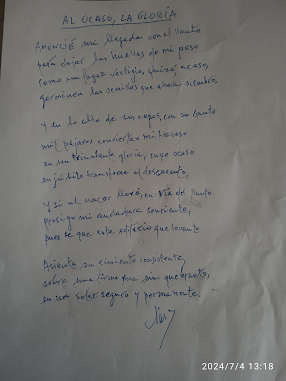 AL OCASO, LA GLORIA
Anuncié mi llegada con el llanto
para dejar las huellas de mi paso
como un fugaz vestigio, quizá, acaso,
germinen las semillas que ahora siembro,
Y en lo alto de sus copas, con su canto
mil pájaros conviertan mi fracaso
en un triunfante gloria, cuyo ocaso
en júbilo transforme el descontento.
Y si al nacer lloré, en vez del llanto
prosigo mi andadura sonriente,
pues sé que este edificio que levanto
Asienta su cimiento consistente,
sobre una firme sin quebranto,
en un solar seguro y permanente.
2024/7/4 13:18